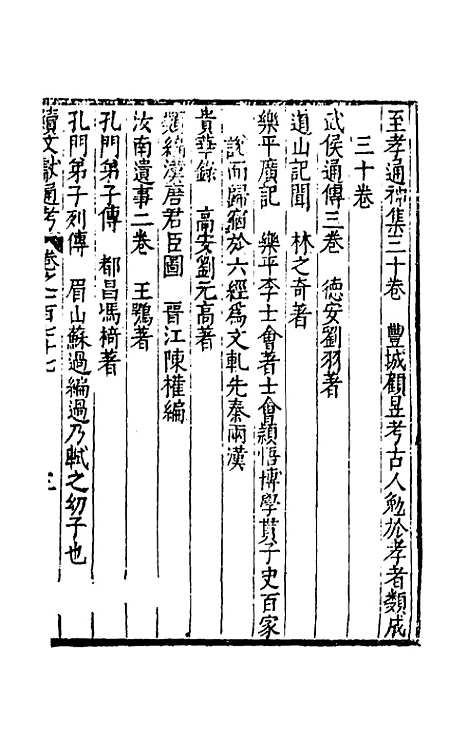 至孝通神集三十卷　豐城顧昱考古人勉於孝者類成
三十卷
武侯通傳三卷　德安劉羽著
道山記聞　林之奇著
樂平廣記　樂平李士會著士會頴悟博學貫子史百家
說而歸宿於六經爲文軌先秦兩漢
貴華錄　高安劉元高著
類編漢唐君臣圖　晉江陳權編
汝南遺事二卷　王鶚著
孔門弟子傳　都昌馮椅著
孔門弟子列傳　眉山蘇過編過乃軾之幼子也
續文獻通考　卷之一百七十七　三